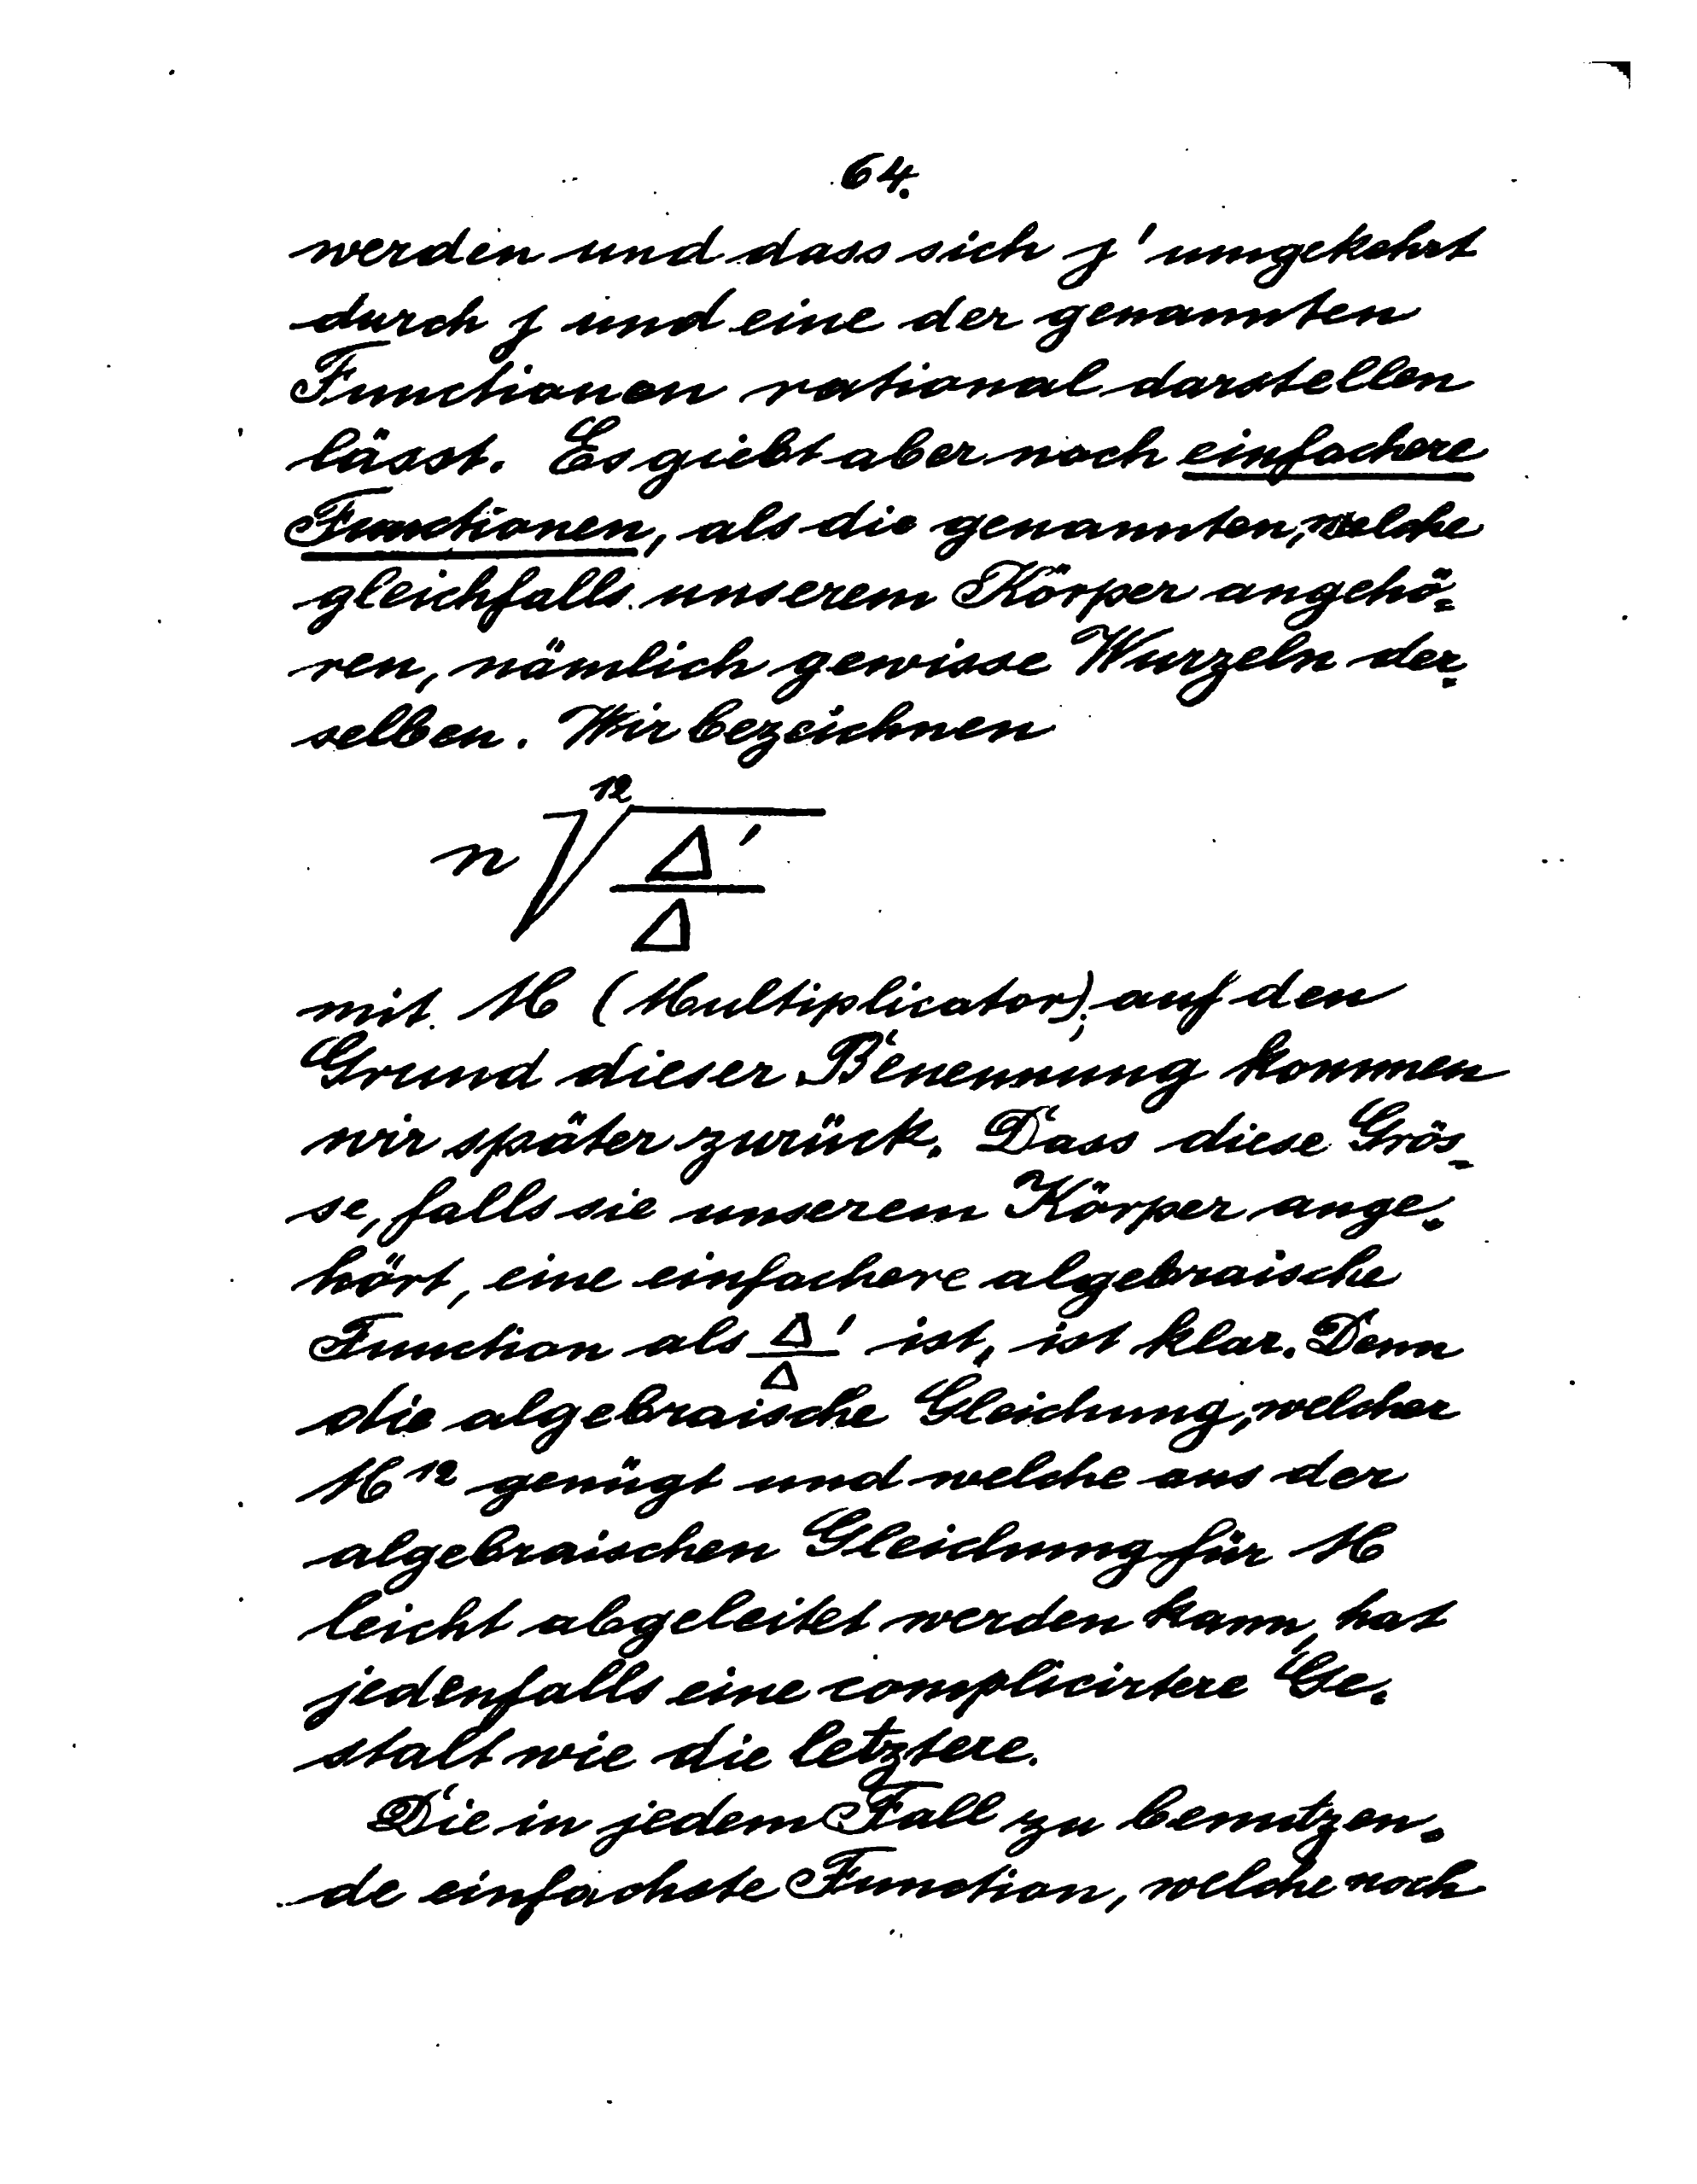 64.
werden und dass sich j' umgekehrt
durch j und eine der genannten
Functionen rational darstellen
lässt. Es giebt aber noch einfachere
Functionen, als die genannten, welche
gleichfalls unserem Körper angehö-
ren, nämlich gewisse Wurzeln der-
selben. Wir bezeichnen
n \sqrt[12]{\frac{Δ'}{Δ}}
mit M (Multiplicator); auf den
Grund dieser Benennung kommen
wir später zurück. Dass diese Grös-
se, falls sie unserem Körper ange-
hört, eine einfachere algebraische
Function als \frac{Δ'}{Δ} ist, ist klar. Denn
die algebraische Gleichung, welcher
M^{12} genügt und welche aus der
algebraischen Gleichung für M
leicht abgeleitet werden kann, hat
jedenfalls eine complicirtere Ge-
stalt wie die letztere.
Die in jedem Fall zu benutzen-
de einfachste Function, welche noch